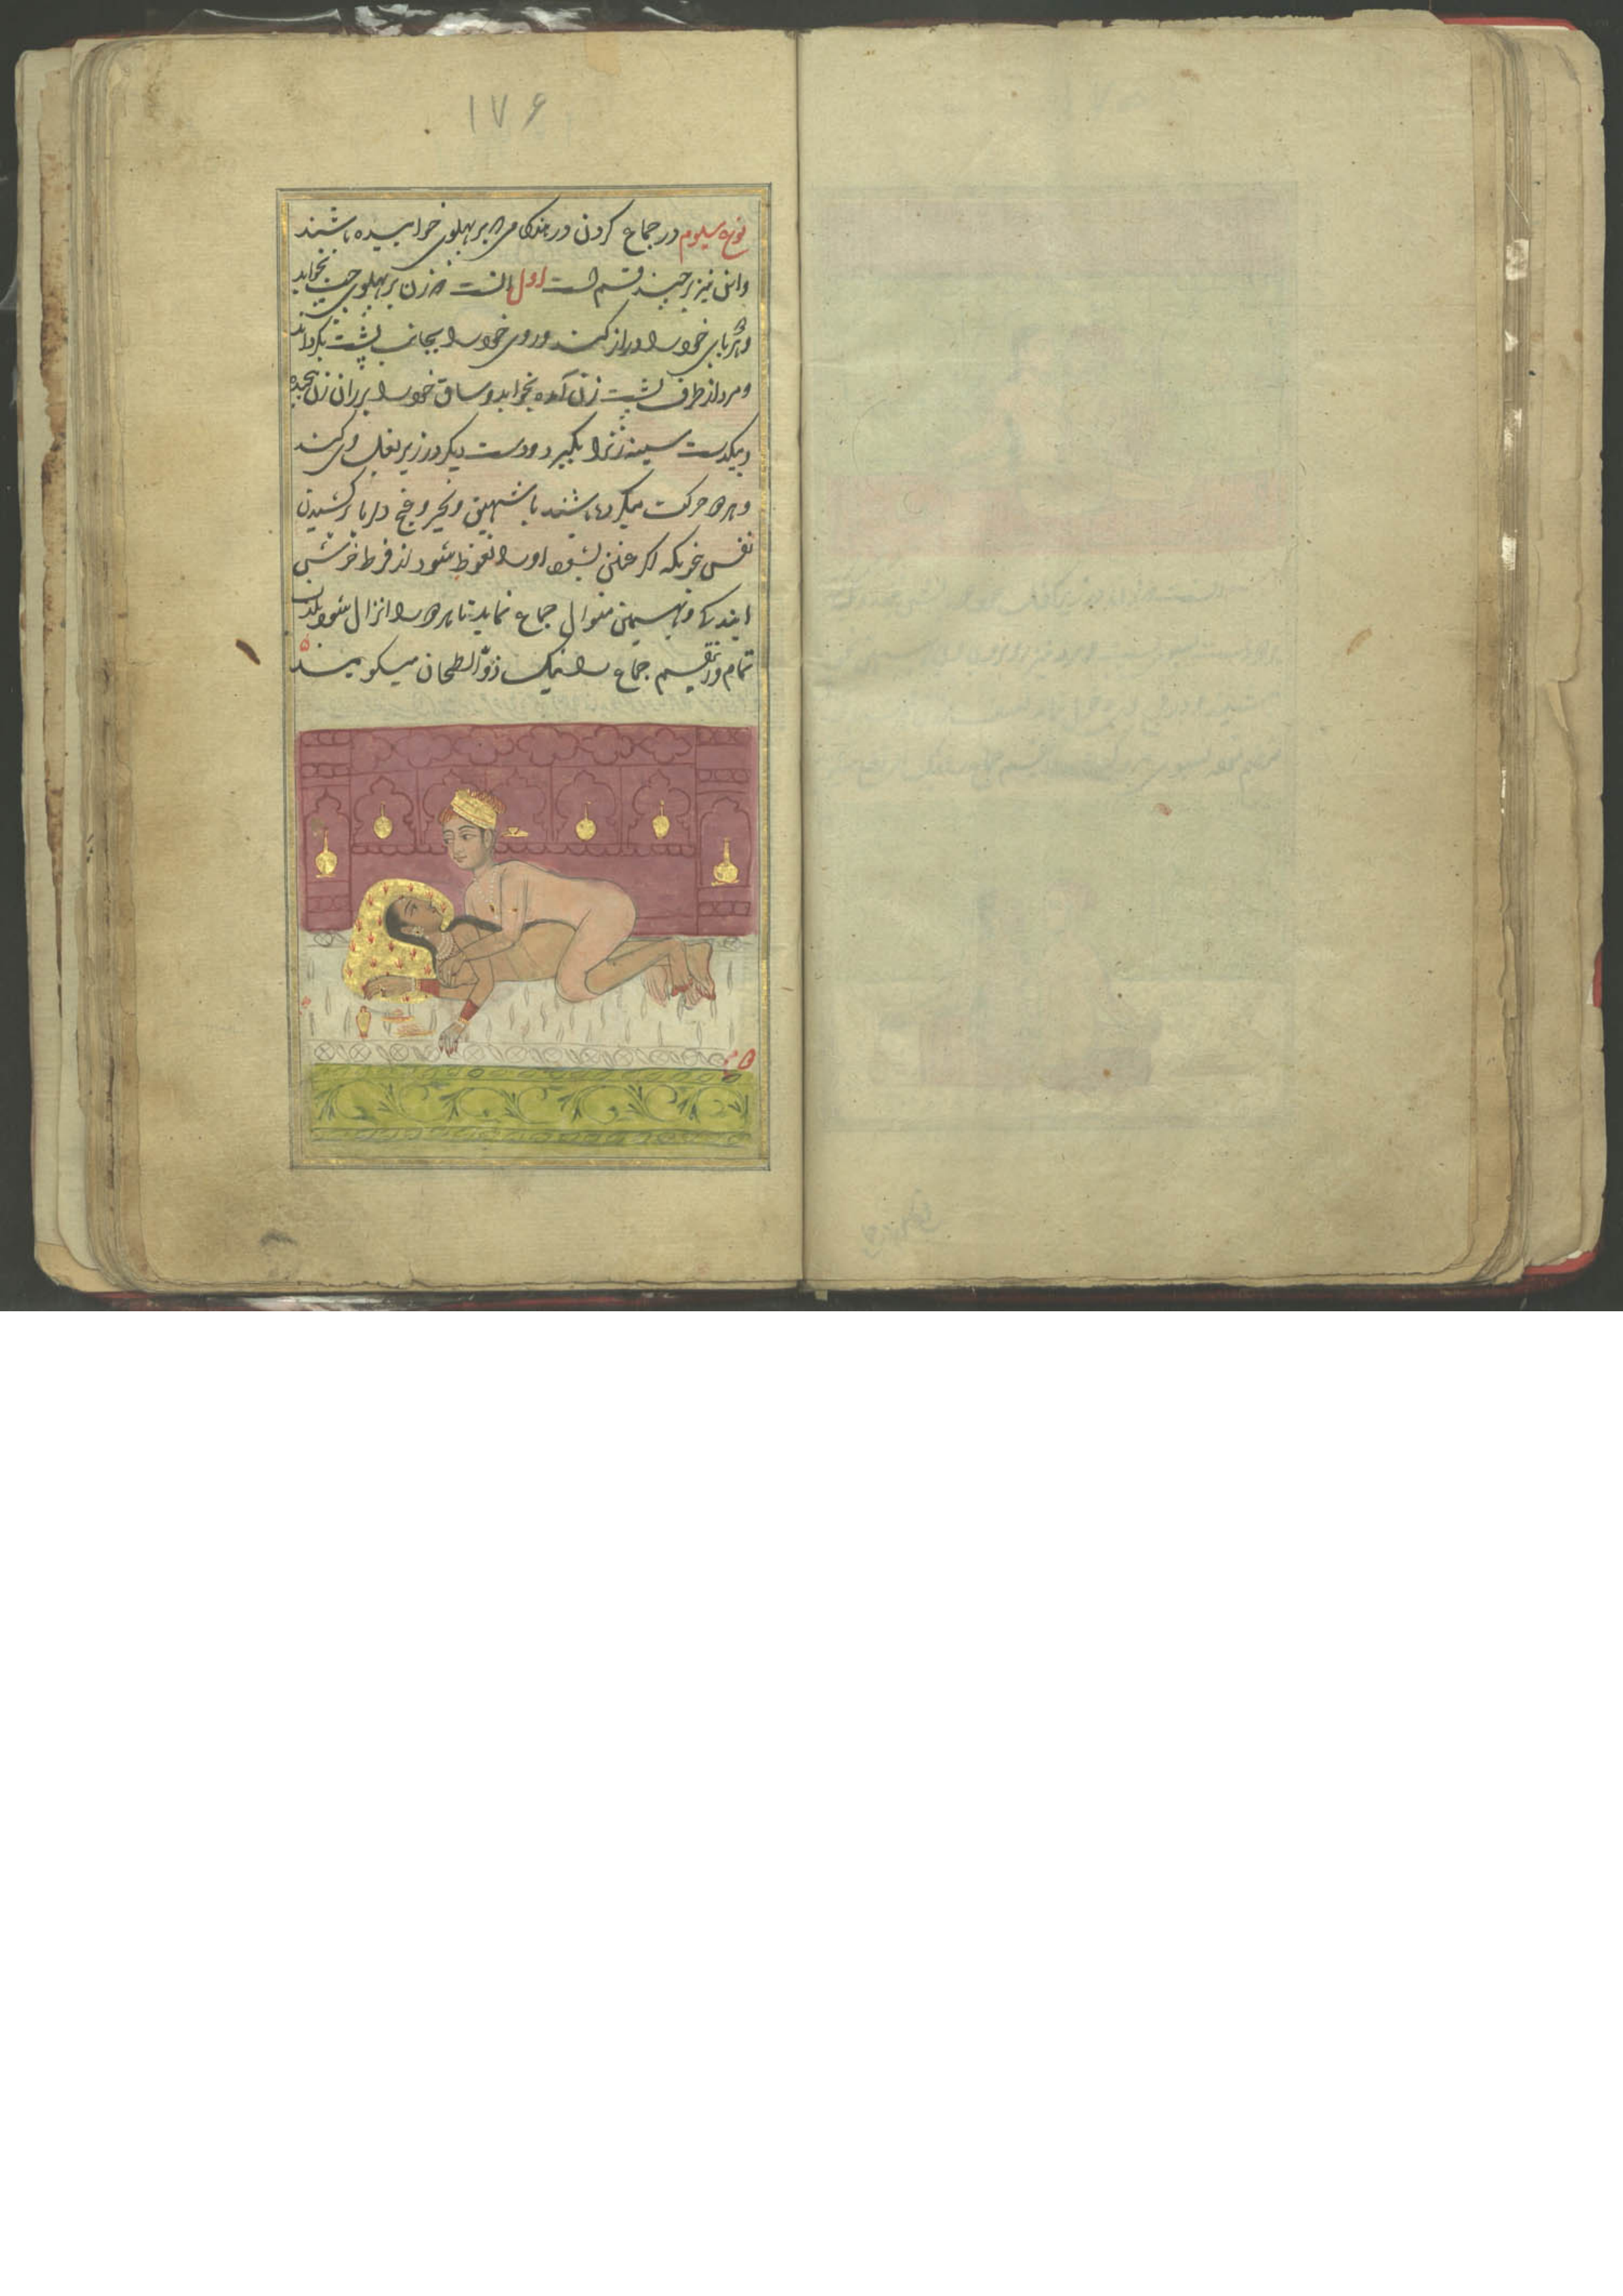 ۱۷۶
نوع سیوم در جماع کردن در هنکامی که بر پهلوی خوابیده باشند
و این نیز بر چند قسم است اول آنست که زن بر پهلوی چپ بخوابد
و هر دو پای خود را دراز کند و روی خود را بجانب پشت بکرداند
و مرد از طرف پشت زن آمده بخوابد و ساق خود را بر ران زن
و بیکدست سینه زنرا بکیرد و دست دیکر در زیر بغل وی کند
و هر دو حرکت میکرده باشند با شهیق و نخیر و غنج دلربا و کشیدن
نفس که اکر عنین بشنود او را نعوظ شود از فرط خوشی
و بهمین منوال جماع نماید تا هر دو را انزال شود بلذت
تمام و این قسم جماع را نیک الطحان میکویند